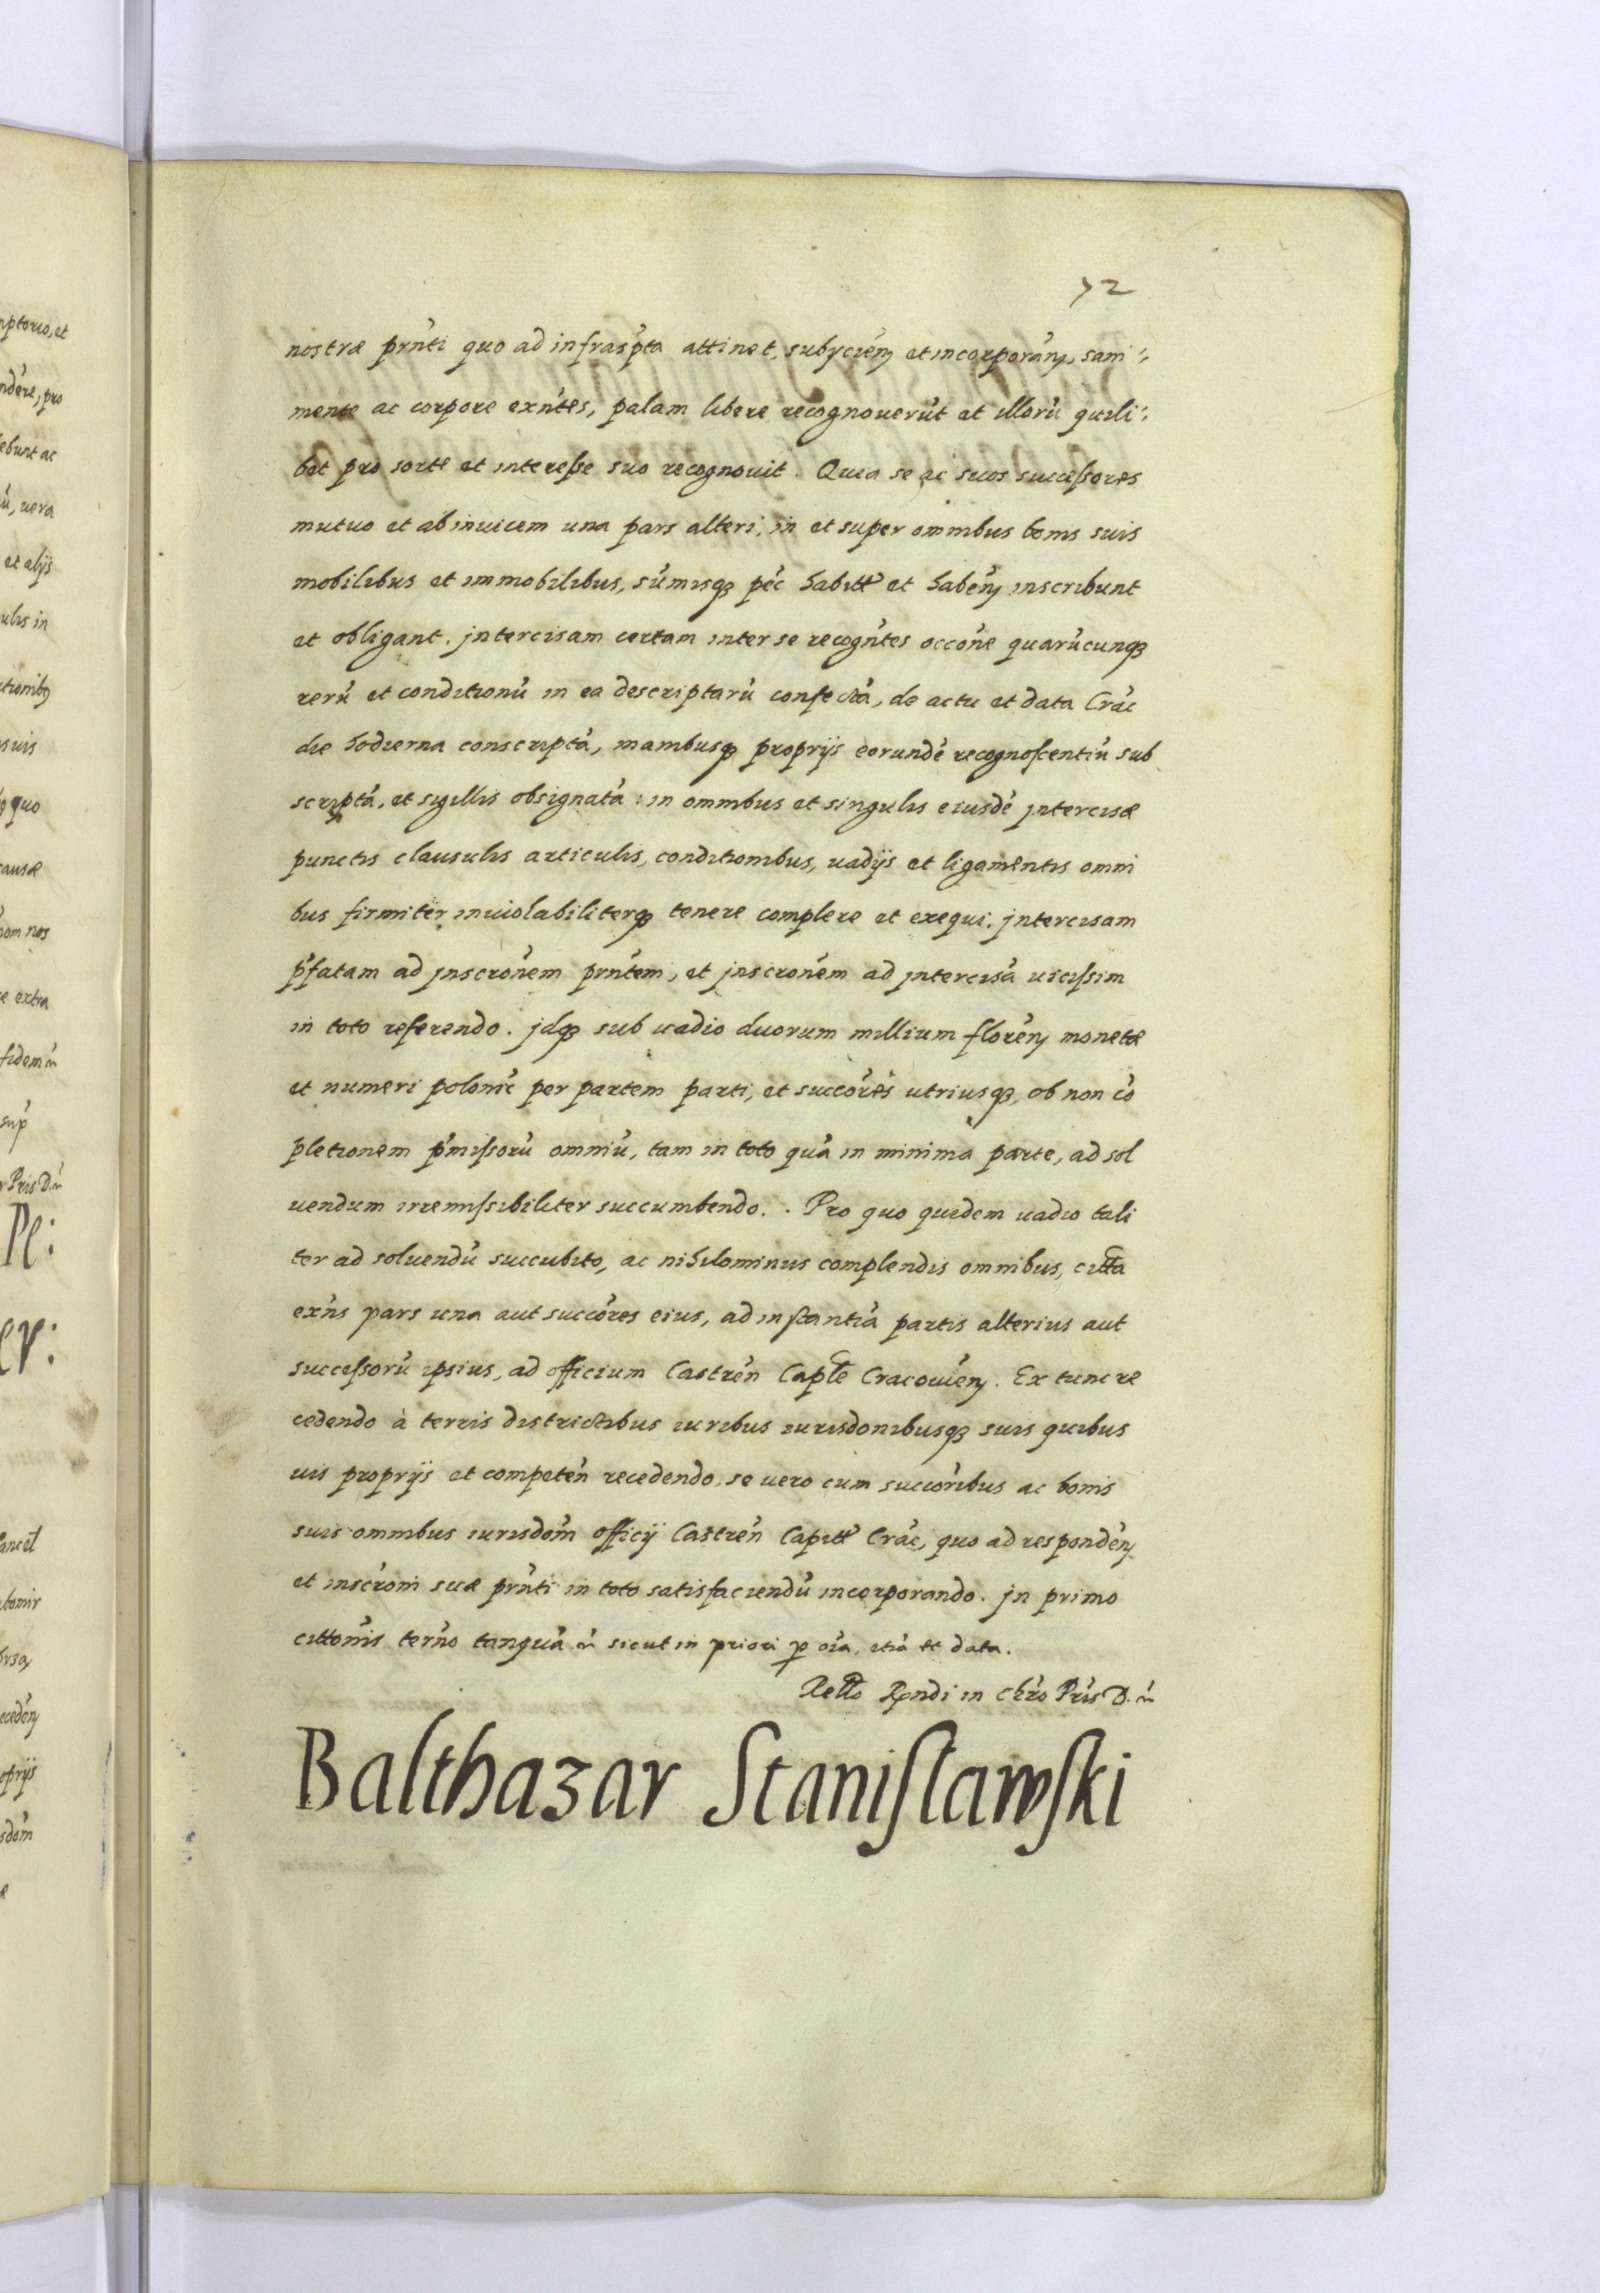 72
nptorio, et
ndére, pro
ebunt ac
ú, uera
et alijs
ulis in
ctionibꝫ
suis
quo
causæ
nom nos
e extra
fidem
sup
Pris D.
Pe:
er:
Cancel
bomir
recedeń
oprijs
sdom̃
nostræ prńti quo ad infrasṕta attinet, subyciéń et incorporáń, sani
mente ac corpore exńtes, palam libere recognouerút et illorú quili
bet pro sorte et interesse suo recognouit. Quia se ac suos successores
mutuo et abinuicem una pars alteri, in et super omnibus bonis suis
mobilibus et immobilibus, súmisqꝫ péc habitt̃ et habéń inscribunt
et obligant. jntercisam certam inter se recogńtes occóne quarúcunqꝫ
rerú et conditionú in ea descriptarú confectá, de actu et data Crác
die hodierna conscriptá, manibusqꝫ proprijs eorundé recognoscentiú sub
scriptá, et sigillis obsignatá: in omnibus et singulis eiusdé jntercisæ
punctis clausulis articulis, conditionibus, uadijs et ligamentis omni
bus firmiter inuiolabiliterqꝫ tenere complere et exequi. jntercisam
ṕfatam ad jnscrónem prńtem, et jnscrónem ad jntercisá uicissim
in toto referendo. jdqꝫ sub uadio duorum millium floréń monetæ
et numeri polonić per partem parti, et succóres utriusqꝫ, ob non có
pletionem ṕmissorú omniú, tam in toto quá in minima parte, ad sol
uendum irremissibiliter succumbendo. Pro quo quidem uadio tali
ter ad soluendú succubito, ac nihilominus complendis omnibus, citt̃a
exńs pars una aut succóres eius, ad instantiá partis alterius aut
successorú ipsius, ad officium Castréń Caplt̃e Cracouiéń. Ex tunc re
cedendo à terris districtibus iuribus iurisdonibusqꝫ suis quibus
uis proprijs et competéń recedendo, se uero cum succóribus ac bonis
suis omnibus iurisdom̃ officij Castréń Capitt̃ Crác, quo ad respondéń
et inscróni suæ prńti in toto satisfaciendú incorporando. jn primo
cittonís terńo tanquá sicut in priori ꝑ oía, itía et data.
Relt̃o Rṕndi in Chró Prís D.
Balthazar Stanisławski